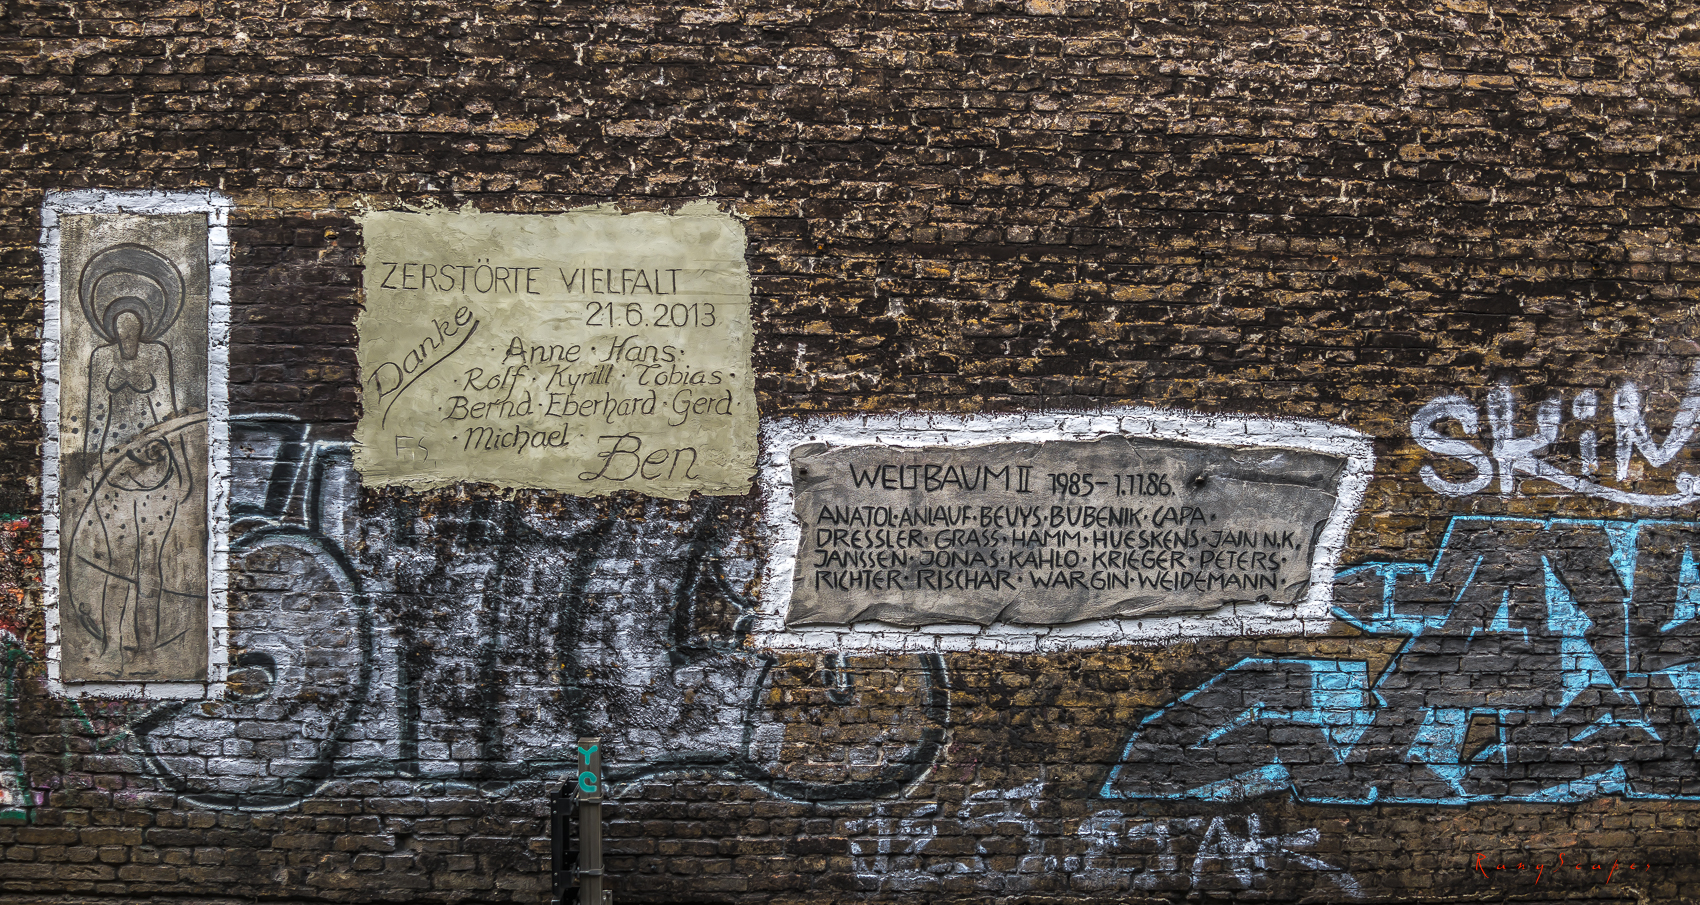 ZERSTÖRTE VIELFALT
21.6.2013
Danke
· Anne · Hans ·
· Rolf · Kyrill · Tobias ·
· Bernd · Eberhard · Gerd
· Michael ·
Ben
FS
WELTBAUM II 1985-1.11.86.
ANATOL·ANLAUF·BEUYS·BUBENIK·CAPA·
DRESSLER·GRASS·HAMM·HUESKENS·JAIN N.K.
JANSSEN·JONAS·KAHLO·KRIEGER·PETERS·
RICHTER·RISCHAR·WARGIN·WEIDEMANN·
YG
RanyScapes